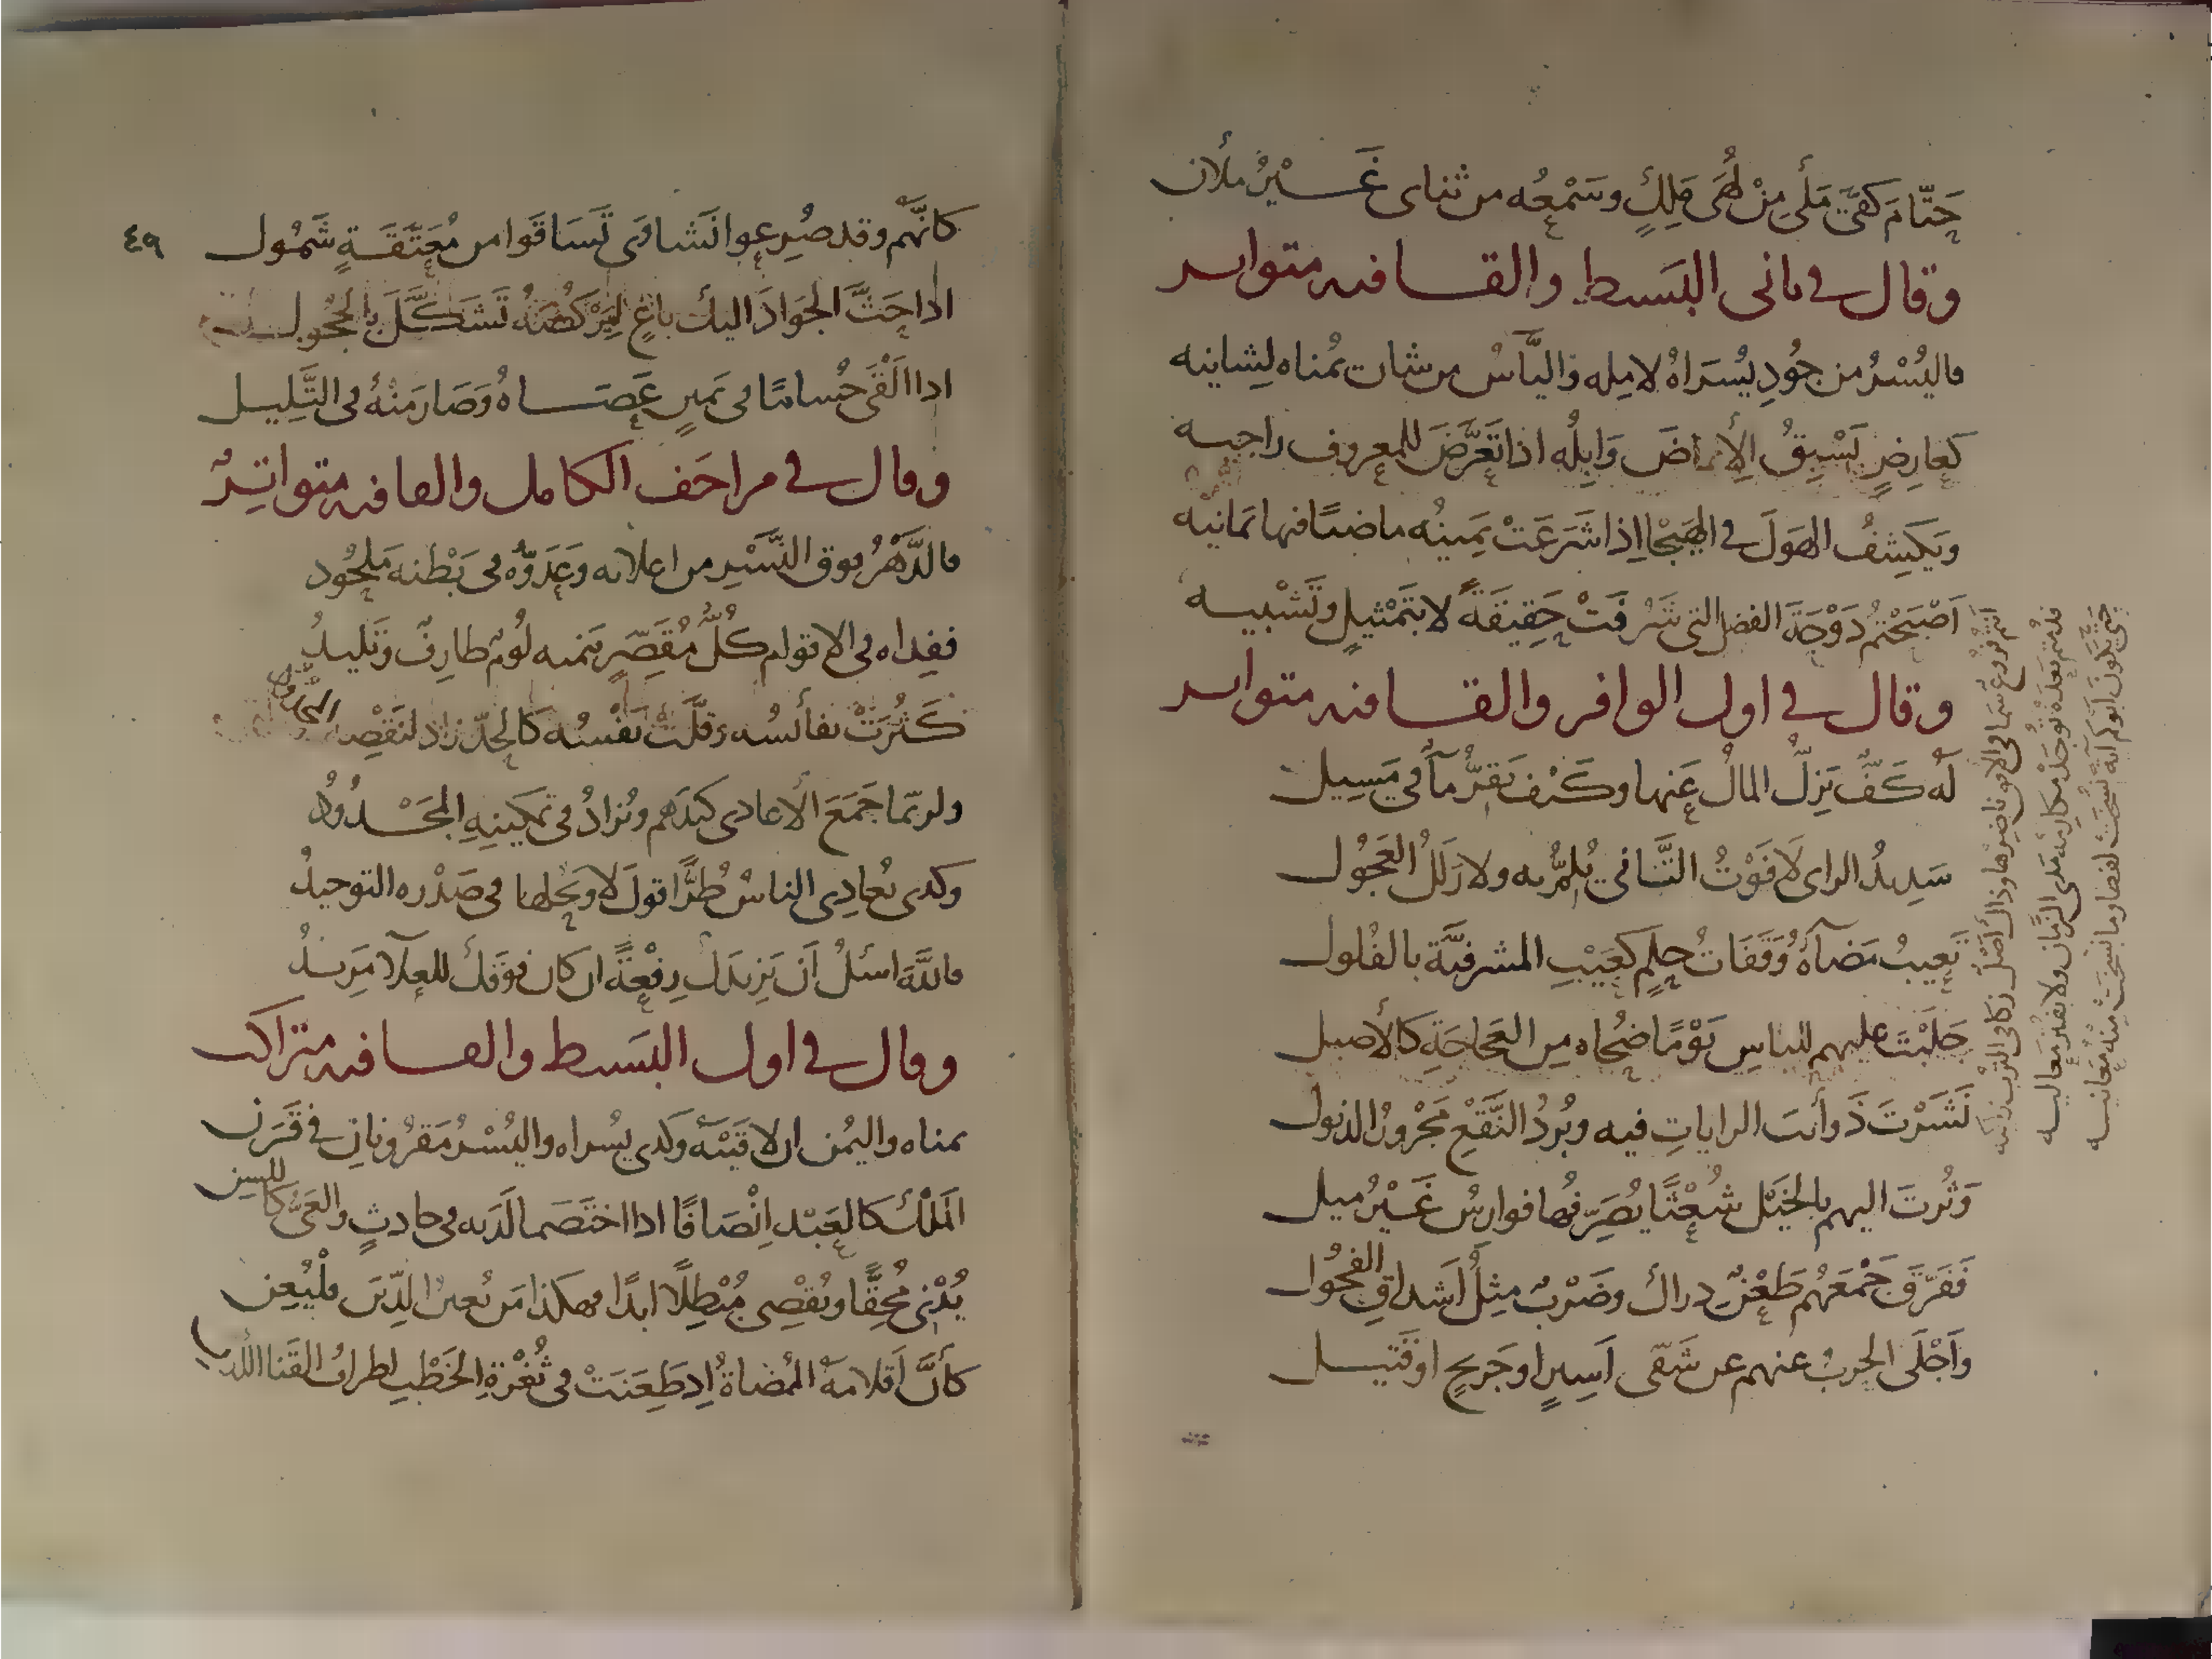 حَتَّامَ كَفّى مَلْى مِنْ لُهَى مَلِكٍ وسَمْعُه من ثناى غَيْرُ ملأن
وقال في ثانى البَسيط والقافيه متواتر
فاليُسْرُ من جُودِ يُسْرَاهُ لامِله واليَأْسُ من شات يُمناه لِشانيه
كَعارِضٍ يَسْبِقُ الإِيماضَ وَابِلُه اذا تَعَرَّضَ للمعروف راجيه
ويَكشِفُ الهَولَ في الهَيْجا إِذا شَرَعَتْ يَمِينُه ماضيًا فيها يَمانيه
أَصْبَحْتُمُ دَوْحَةَ الفضل التى شَرُفَتْ حَقِيقَةً لا بتَمْثيلٍ وتَشْبيه
انتم فُرُوع سَما فى الافق ناضِرها وذاك أَصْل زكا فى التُرْب زاكيه
فدُمتم بَعدَهُ توجَدْ مكارِمُه مَدَى الزَّمان ولا تُفقَد مَعاليه
حَتّى يَكونَ أبوكم آيةً نُسِخَتْ لفظا وما نُسِخَتْ مِنْه مَعانيه
وقال في اول الوافر والقافيه متواتر
لَه كَفٌّ يَزِلُّ المالُ عَنها وكَيْفَ يَقِرُّ مآءٌ في مَسِيل
سَدِيدُ الراى لا فَوْتُ التَّأَنّي يُلِمُّ به ولا زَلَلُ العَجُول
تَعِيبُ مَضآءَهُ وَقَفَاتُ حِلمٍ كعَيْبِ المشرفيَّة بالفُلول
جَلَبْتَ عليهم للباسِ يَوْمًا ضُحاه مِن العَجاجَةِ كالأَصيل
نَشَرْتَ ذَوائبَ الراياتِ فيه وبُرْدُ النَّقْعِ مَجْرُورُ الذيول
وَثُرتَ اليهم بالخَيْل شُعْثًا يُصَرِّفُها فوارِسُ غَيْرُ ميل
فَفَرَّقَ جَمْعَهُم طَعْنٌ دِراكٌ وضَرْبٌ مِثلُ أَشداقِ الفُحُول
وأَجْلَى الحربُ عنهم عن شَقّى أَسِيرٍ او جَريحٍ او قَتيل
٤٩
كانَّهم وقد صُرِعوا نَشاوَى تَسَاقَوا من مُعَتَّقَةٍ شَمُول
اذا حَثَّ الجَوَادَ اليك باغٍ لِيَرْكُضَهُ تَشَكَّلَ بالحُجُول
اذا أَلقَى حُسامًا فى يَمينٍ عَصَاهُ وَصَارَ مَنْهُ فى التَّلِيل
وقال في مزاحَف الكامل والقافيه متواتِرٌ
فالدَّهْرُ فوق النَّسْرِ من اعلائه وَعَدُوُّه فى بَطْنه مَلحُود
ففِداه فى الاقوام كُلُّ مُقَصِّرٍ يَنميه لُومٌ طارِفٌ وتَليدُ
كَثُرَتْ نفائسُه وقَلَّتْ نَفْسُه كالحدّ زاد لنَقْصِه المحدود
ولربّما جَمَعَ الأعادى كيدَهم ويُزادُ فى تمكينِه المَجْدُودُ
وكذى يُعادِى الناسُ طُرًّا قولَ لا ويَحُلها فى صَدْره التوحيدُ
فاللهَ اسئلُ أَن يَزيدَك رِفْعَةً ان كان فوقَك للعلآ مَزيدُ
وقال في اول البَسيط والقافيه متراكب
يمناه واليُمْن ان لاقَيْتَه وكذى يُسراه واليُسْرُ مَقرُونانِ في قَرَن
المَلْكُ كالعَبْد اِنْصَافًا اذا اختَصَما لَدَيه فى حادثٍ والعَىُّ كاللسِن
يُدْنى مُحِقًّا ويُقْصِى مُبْطِلًا ابدًا وهكذا مَن يُعين الدِّينَ فليُعِن
كأَنَّ أَقلامَهُ المُضاةُ إِذ طَعنَتْ فى ثُغْرةِ الخَطْبِ اطرافُ القَنا اللدن